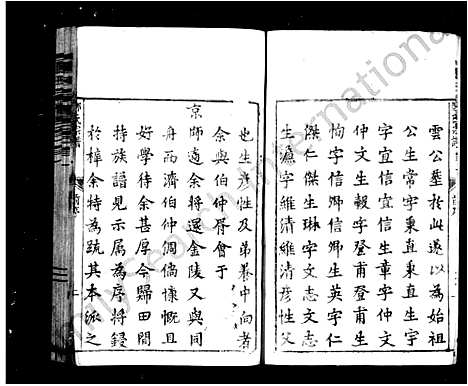 雲公葬於此遂以為始祖
公生常字秉直生宇
宇宜信宜生章字仲文
仲文生毅字登甫生
恂字信卿生英字仁
傑仁傑生琳字文志文志
生瀛字維清維清彥性父
也生彥性及弟綦中向者
余與伯仲胥會于
京師適余將還金陵又與同
舟而濟伯仲倜儻慷慨且
好學待余甚厚今歸田間
持族譜見示屬為序將鋟
於梓余特為疏其本派之
My Genealogy International